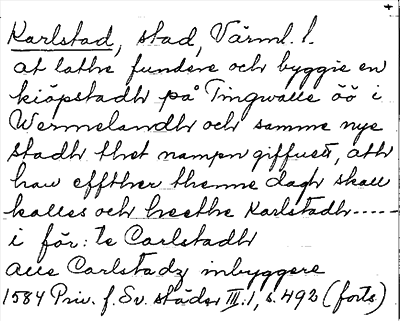 Karlstad, stad, Värml. l.
at lathe fundere och byggie en
kiöpstadh på Tingwalle öö i
Wermelandh och samme nye
stadh thet nampn giffuett, ath
han effther thenne dagh skall
kalles och heethe Karlstadh-----
i för: te Carlstadh
alle Carlstadz inbyggere
1584 Priv. f. Sv. städer III:1, s. 492 (forts)